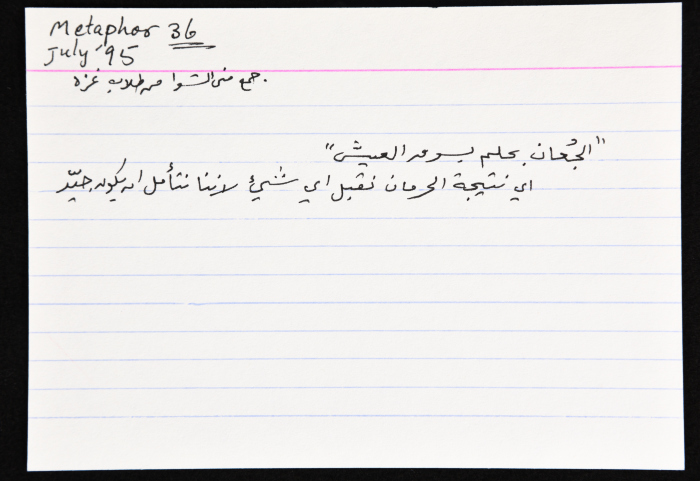 Metaphor 36
July '95
جمع منى الشوا من طلاب غزه.
"الجُعان بحلم بسوق العيش"
اي نتيجة الحرمان نقبل اي شيئ لاننا نتأمل ان يكون جيّد